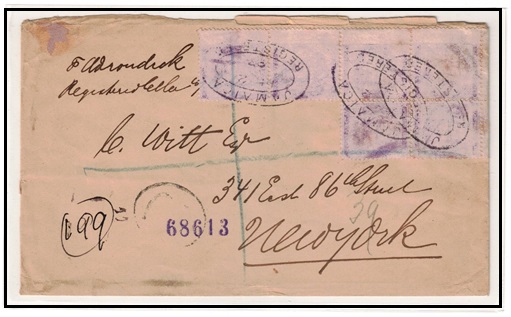 JAMAICA REGISTERED
JAMAICA REGISTERED
JAMAICA REGISTERED
p Adirondack
Registered letter
C. Witt Esq
341 East 86th Street
39
New York
68613
199